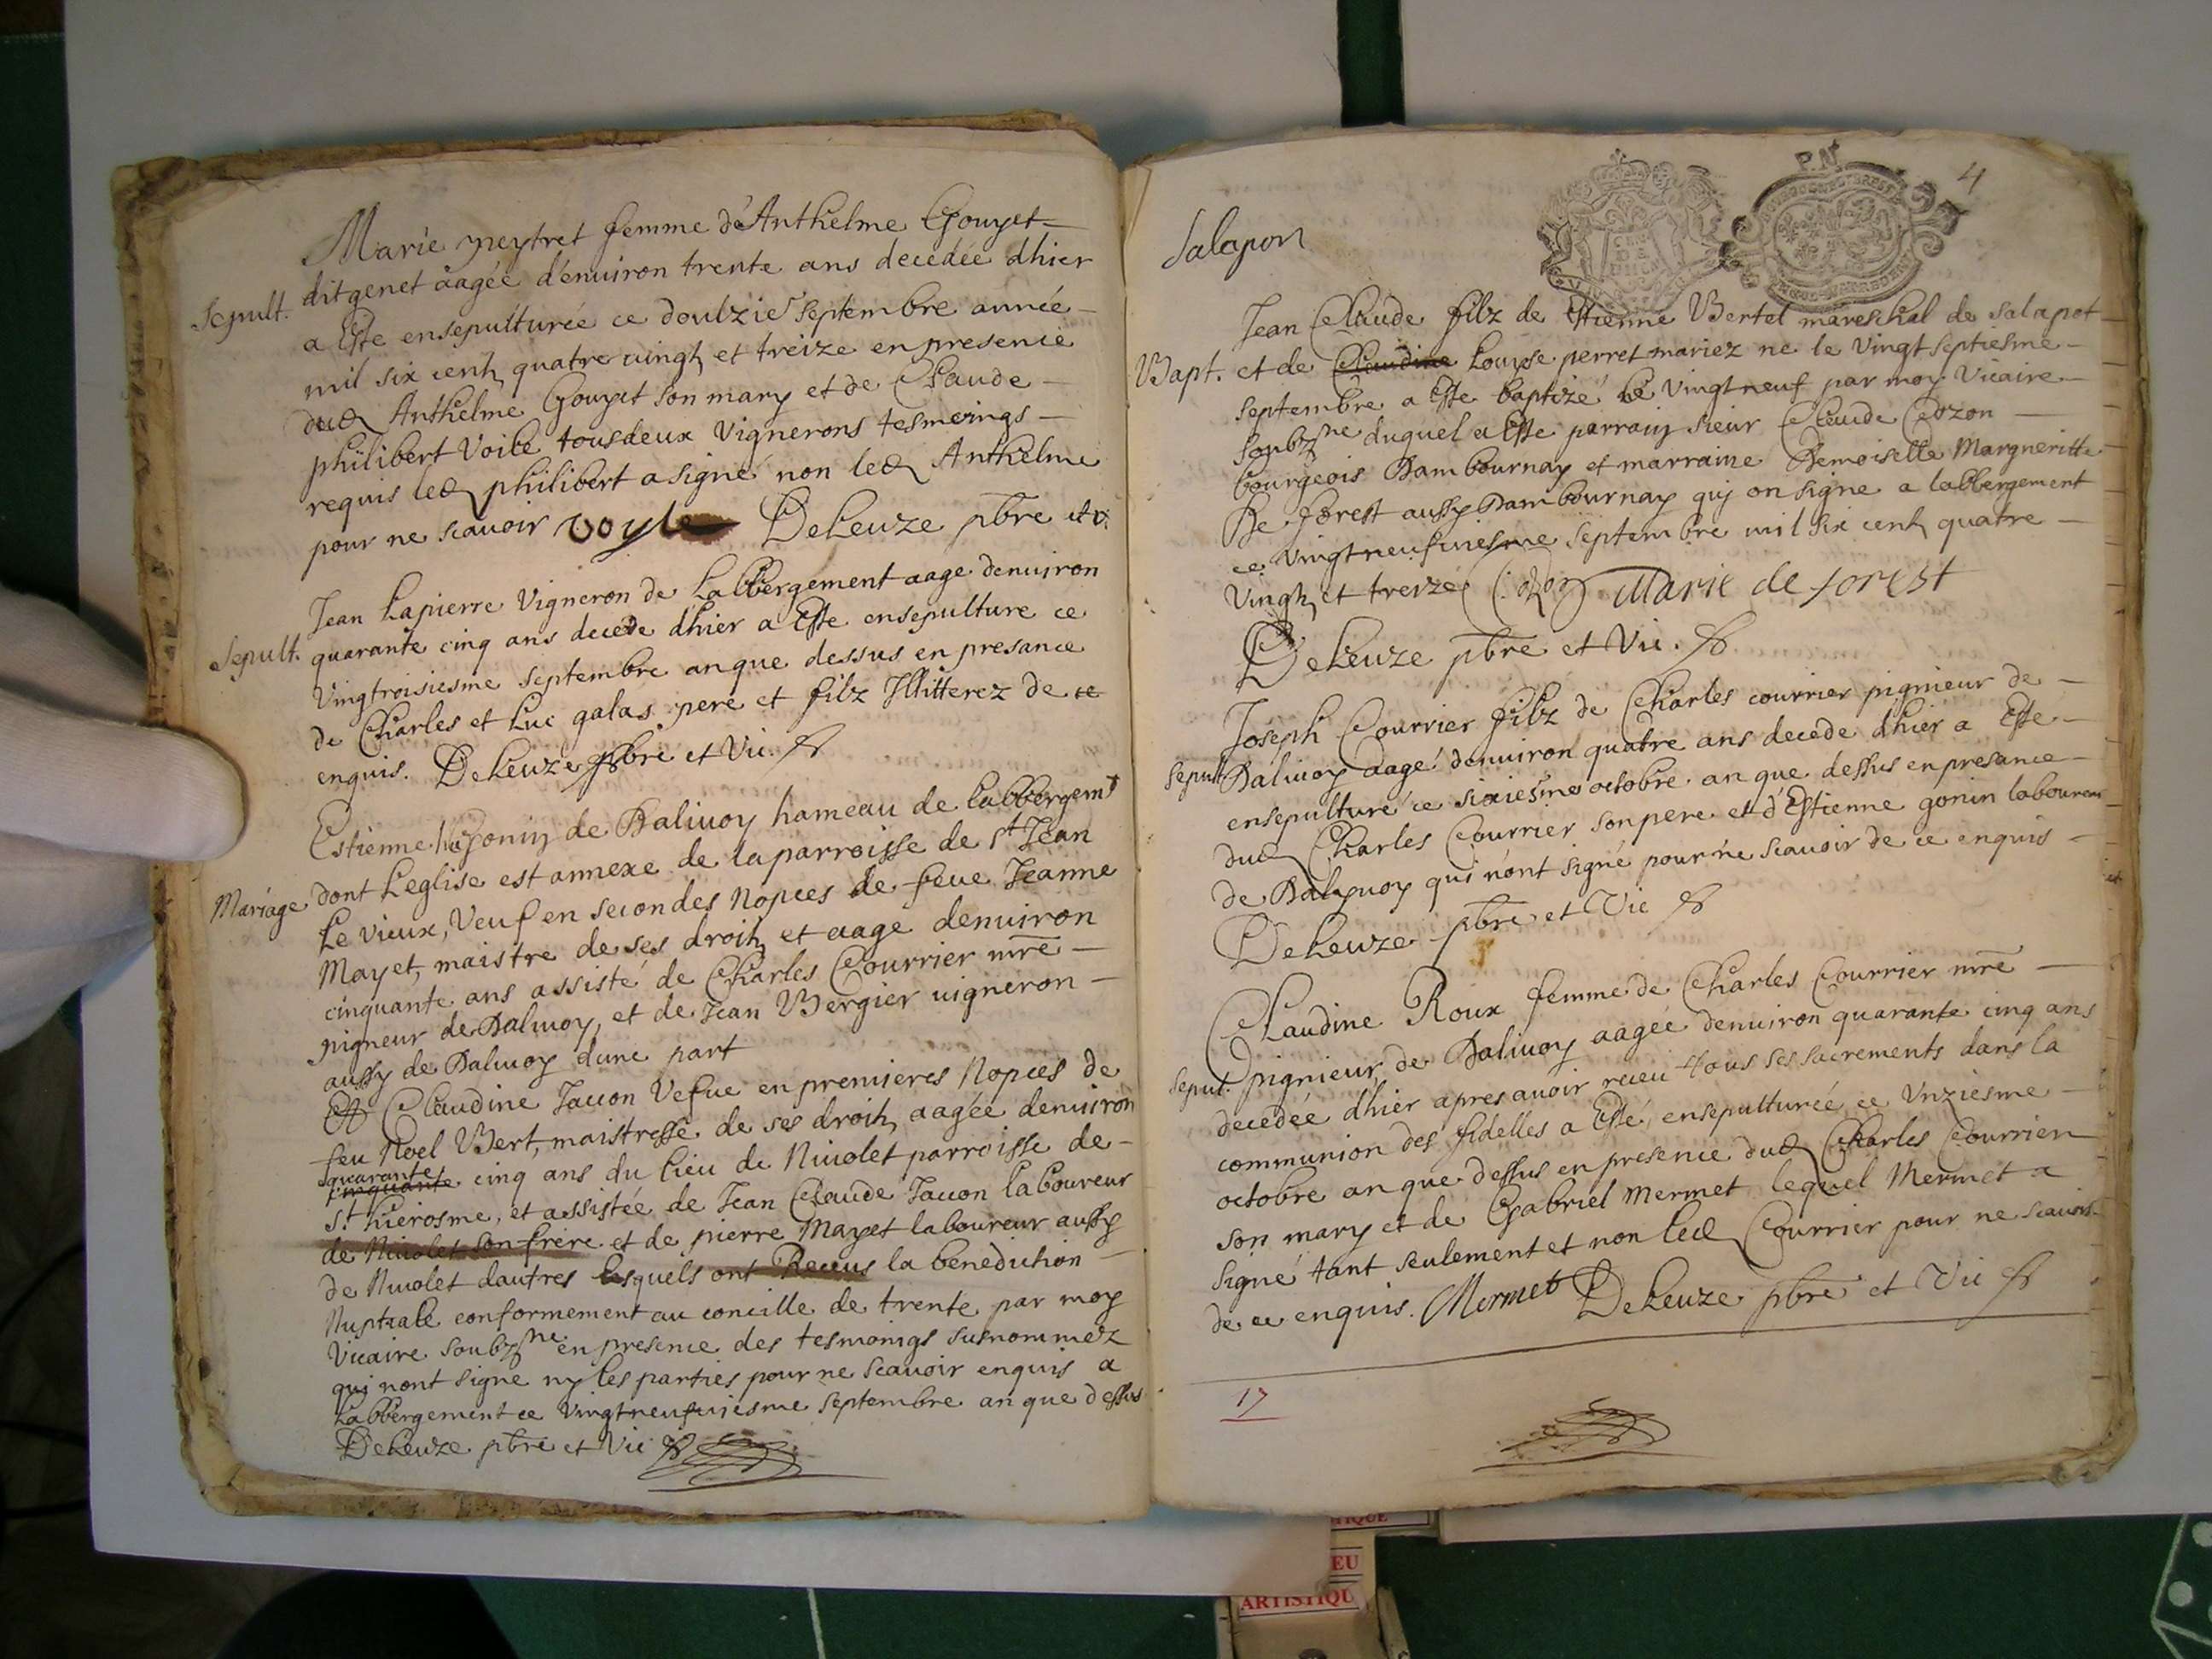 Marie peytret femme d'Anthelme Gouyet
dit genet aagée d'enuiron trente ans decedée dhier
Sepult.
a Este ensepulturée ce doulzie septembre année
mil six cent quatre vingt et treize en presence
dud Anthelme Gouyet son mary et de Claude
philibert Voile tous deux Vignerons tesmoings
requis led philibert a signé non led Anthelme
pour ne scauoir voyle DeLeuze pbre et v.
Jean Lapierre Vigneron de Labbergement aage denuiron
Sepult.
quarante cinq ans decede dhier a Este ensepulture ce
Vingtroisiesme septembre an que dessus en presance
de Charles et Luc galas pere et filz Illitterez de ce
enquis. DeLeuze pbre et Vic.
Estienne Gonin de Daliuoy hameau de Labbergemt
Mariage
dont Leglise est annexe de la parroisse de st Jean
Le vieux, Veuf en secondes Nopces de feue Jeanne
Mayet, maistre de ses droits et aage denuiron
cinquante ans assisté de Charles Courrier mre
pigneur de Daliuoy, et de Jean Bergier uigneron
aussy de Daliuoy dune part
Et Claudine Jacon Vefue en premieres Nopces de
feu Noel Bert, maistresse de ses droits aagée denuiron
quarante
cinquante cinq ans du lieu de Niuolet parroisse de
st hierosme, et assistée de Jean Claude Jacon laboureur
de Niuolet son frere et de pierre Mayet laboureur aussy
de Niuolet dautres lesquels ont Receus la benediction
Nuptiale conformement au concille de trente par moy
Vicaire soubzne en presence des tesmoings susnommez
qui nont signe ny les parties pour ne scauoir enquis a
Labbergement ce Vingtneufuiesme septembre an que dessus
DeLeuze pbre et Vic
P.N
4
Salapon
Jean Claude filz de Estienne Bertet mareschal de salapot
Bapt.
et de Claudine Louyse perret mariez ne le Vingt septiesme
septembre a Este baptizé le Vingt neuf par moy Vicaire
soubzne duquel a Este parrain sieur Claude Cozon
bourgeois Dambournay et marraine Demoiselle Margueritte
De forest aussy Dambournay qui on signe a labbergement
ce Vingtneufuiesme septembre mil six cent quatre
Vingt et treize Cozon Marie de forest
DeLeuze pbre et Vic.
Joseph Courrier filz de Charles courrier pignieur de
sepult
Daliuoy aagé denuiron quatre ans decede dhier a Este
ensepulturé ce sixiesme octobre an que dessus en presance
dud Charles Courrier son pere et d'Estienne gonin laboureur
de Dalyuoy qui n'ont signé pour ne scauoir de ce enquis
DeLeuze pbre et Vic
Claudine Roux femme de Charles Courrier mre
Sepul.
pignieur de Daliuoy aagée denuiron quarante cinq ans
decedée dhier apres auoir receu tous ses sacrements dans la
communion des fidelles a Esté ensepulturée ce Vnziesme
octobre an que dessus en presence dud Charles Courrier
son mary et de Gabriel Mermet lequel Mermet a
signé tant seulement et non led Courrier pour ne scauoir
de ce enquis. Mermet DeLeuze pbre et Vic
17
EU
ARTISTIQU